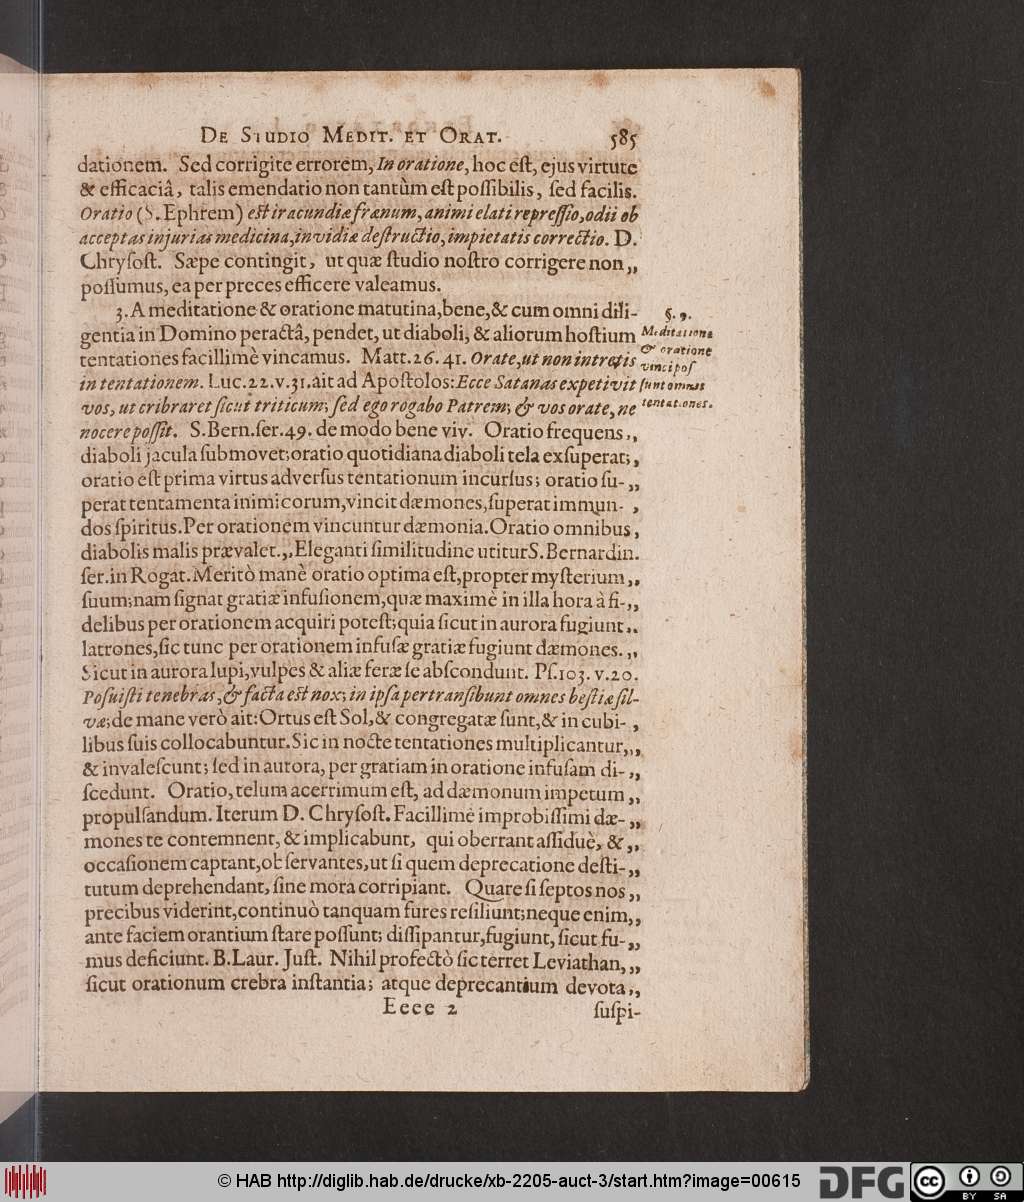 De Studio Medit. et Orat. 585
dationem. Sed corrigite errorem, In oratione, hoc eſt, ejus virtute
& efficaciâ, talis emendatio non tantùm eſt poſſibilis, ſed facilis.
Oratio (S. Ephrem) eſt iracundiæ frænum, animi elati repreſſio, odii ob
acceptas injurias medicina, invidiæ deſtructio, impietatis correctio. D.
Chryſoſt. Sæpe contingit, ut quæ ſtudio noſtro corrigere non „
poſſumus, ea per preces efficere valeamus.
3. A meditatione & oratione matutina, bene, & cum omni dili-
gentia in Domino peractâ, pendet, ut diaboli, & aliorum hoſtium
tentationes facillimè vincamus. Matt. 26. 41. Orate, ut non intretis
in tentationem. Luc. 22. v. 31. ait ad Apoſtolos: Ecce Satanas expetivit
vos, ut cribraret ſicut triticum; ſed ego rogabo Patrem; & vos orate, ne
nocere poſſit. S. Bern. ſer. 49. de modo bene viv. Oratio frequens „
diaboli jacula ſubmovet; oratio quotidiana diaboli tela exſuperat; „
oratio eſt prima virtus adverſus tentationum incurſus; oratio ſu- „
perat tentamenta inimicorum, vincit dæmones, ſuperat immun- „
dos ſpiritus. Per orationem vincuntur dæmonia. Oratio omnibus „
diabolis malis prævalet. „ Eleganti ſimilitudine utitur S. Bernardin.
ſer. in Rogat. Meritò manè oratio optima eſt, propter myſterium „
ſuum; nam ſignat gratiæ infuſionem, quæ maximè in illa hora à fi- „
delibus per orationem acquiri poteſt; quia ſicut in aurora fugiunt „
latrones, ſic tunc per orationem infuſæ gratiæ fugiunt dæmones. „
Sicut in aurora lupi, vulpes & aliæ feræ ſe abſcondunt. Pſ. 103. v. 20.
Poſuiſti tenebras, & facta eſt nox; in ipſa pertranſibunt omnes beſtiæ ſil-
væ; de mane verò ait: Ortus eſt Sol, & congregatæ ſunt, & in cubi- „
libus ſuis collocabuntur. Sic in nocte tentationes multiplicantur, „
& invaleſcunt; ſed in aurora, per gratiam in oratione infuſam di- „
ſcedunt. Oratio, telum acerrimum eſt, ad dæmonum impetum „
propulſandum. Iterum D. Chryſoſt. Facillimè improbiſſimi dæ- „
mones te contemnent, & implicabunt, qui oberrant aſſiduè, & „
occaſionem captant, obſervantes, ut ſi quem deprecatione deſti- „
tutum deprehendant, ſine mora corripiant. Quare ſi ſeptos nos „
precibus viderint, continuò tanquam fures reſiliunt; neque enim „
ante faciem orantium ſtare poſſunt; diſſipantur, fugiunt, ſicut fu- „
mus deficiunt. B. Laur. Juſt. Nihil profectò ſic terret Leviathan, „
ſicut orationum crebra inſtantia; atque deprecantium devota „
Eeee 2 ſuſpi-
§. 9.
Meditatione
& oratione
vinci poſ
ſunt omnes
tentationes.
© HAB http://diglib.hab.de/drucke/xb-2205-auct-3/start.htm?image=00615
DFG
cc BY SA